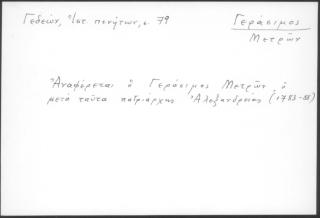 Γεδεών, Ἱστ. πενήτων, σ. 79
Γεράσιμος
Μετρῶν
Ἀναφέρεται ὁ Γεράσιμος Μετρῶν, ὁ
μετὰ ταῦτα πατριάρχης Ἀλεξανδρείας (1783-88)